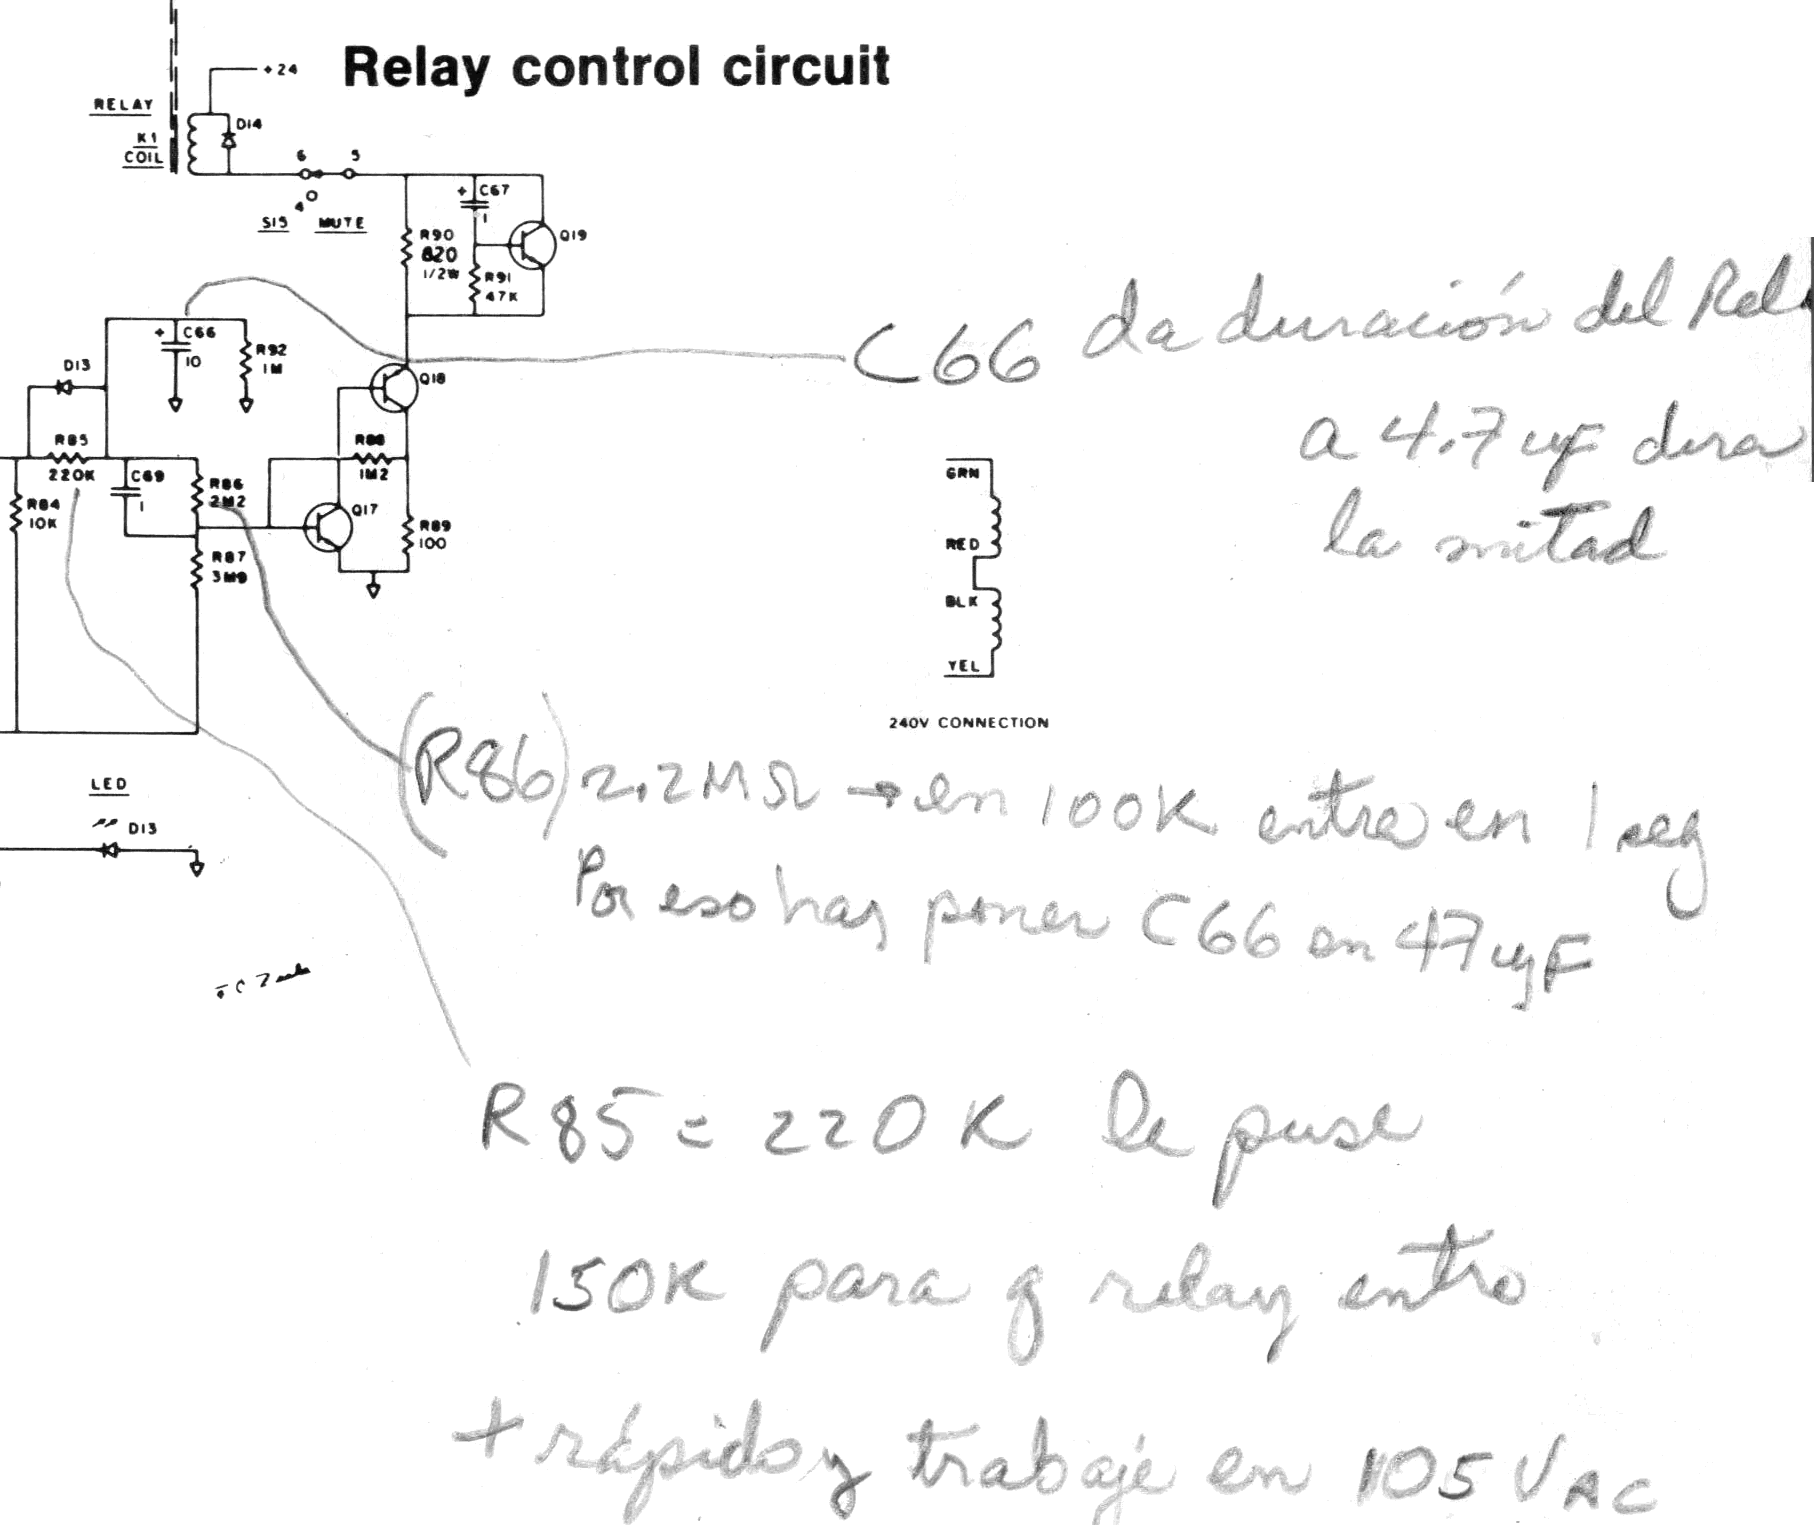 Relay control circuit
+24
RELAY
K1
COIL
D14
6
5
4
S15 MUTE
+ C67
1
Q19
R90
820
1/2W
R91
47K
+ C66
10
R92
1M
D13
Q18
R85
220K
C69
1
R86
2M2
R88
1M2
R84
10K
Q17
R89
100
R87
3M9
C66 da duración del
a 4.7 uF dura
la mitad
GRN
RED
BLK
YEL
240V CONNECTION
(R86) 2.2MΩ → en 100K entra en 1 seg
Por eso hay poner C66 en 47 uF
LED
D13
R85 = 220K le puse
150K para q relay entre
+ rápido y trabaje en 105 VAC